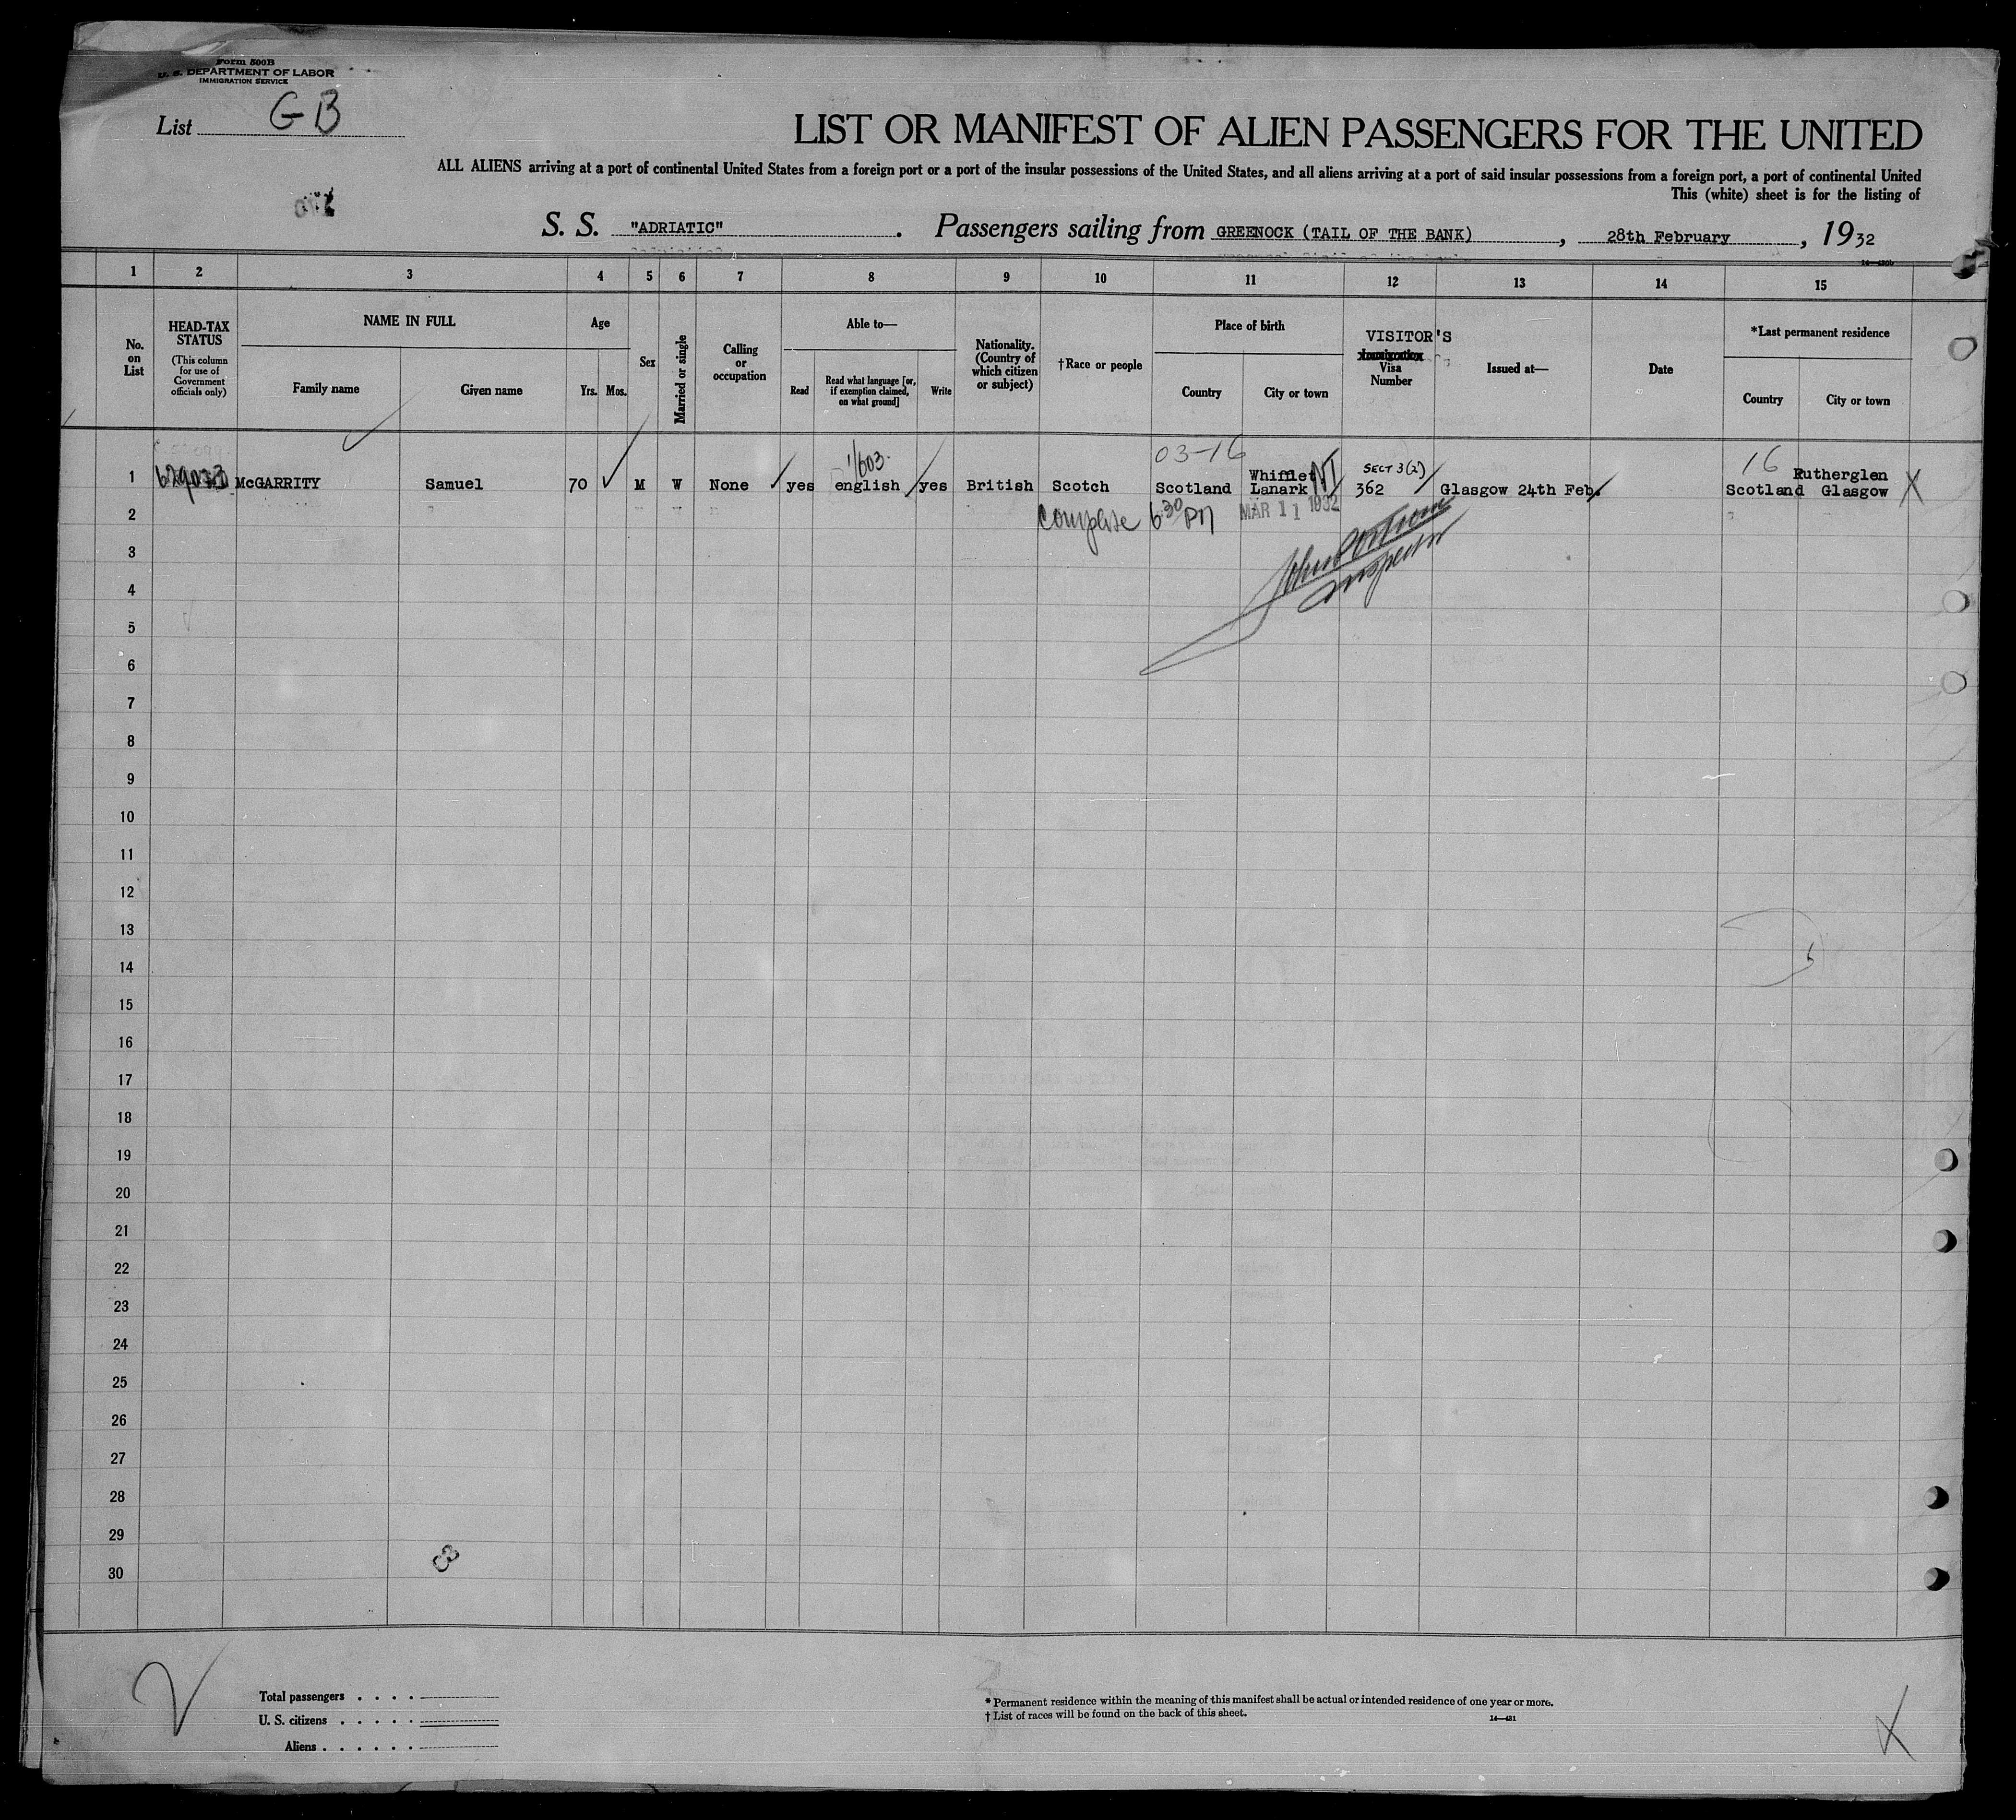 Form 500B
U. S. DEPARTMENT OF LABOR
IMMIGRATION SERVICE
List GB
LIST OR MANIFEST OF ALIEN PASSENGERS FOR THE UNITED
ALL ALIENS arriving at a port of continental United States from a foreign port or a port of the insular possessions of the United States, and all aliens arriving at a port of said insular possessions from a foreign port, a port of continental United
This (white) sheet is for the listing of
S. S. "ADRIATIC" . Passengers sailing from GREENOCK (TAIL OF THE BANK) , 28th February , 1932
1 2 3 4 5 6 7 8 9 10 11 12 13 14 15
No. on List
HEAD-TAX STATUS
(This column for use of Government officials only)
NAME IN FULL
Family name
Given name
Age
Yrs. Mos.
Sex
Married or single
Calling or occupation
Able to—
Read
Read what language [or, if exemption claimed, on what ground]
Write
Nationality. (Country of which citizen or subject)
†Race or people
Place of birth
Country
City or town
VISITOR'S
Immigration Visa Number
Issued at—
Date
*Last permanent residence
Country
City or town
1/603
03-16
SECT 3(2)
16
Whifflet
Rutherglen
1 McGARRITY Samuel 70 M W None yes english yes British Scotch Scotland Lanark 362 Glasgow 24th Feb. Scotland Glasgow X
2 Complete 6 30 PM MAR 11 1932
3
Inspector
4
5
6
7
8
9
10
11
12
13
14
15
16
17
18
19
20
21
22
23
24
25
26
27
28
29
30
Total passengers . . . .
U. S. citizens . . . . .
Aliens . . . . . .
* Permanent residence within the meaning of this manifest shall be actual or intended residence of one year or more.
† List of races will be found on the back of this sheet.
14—421